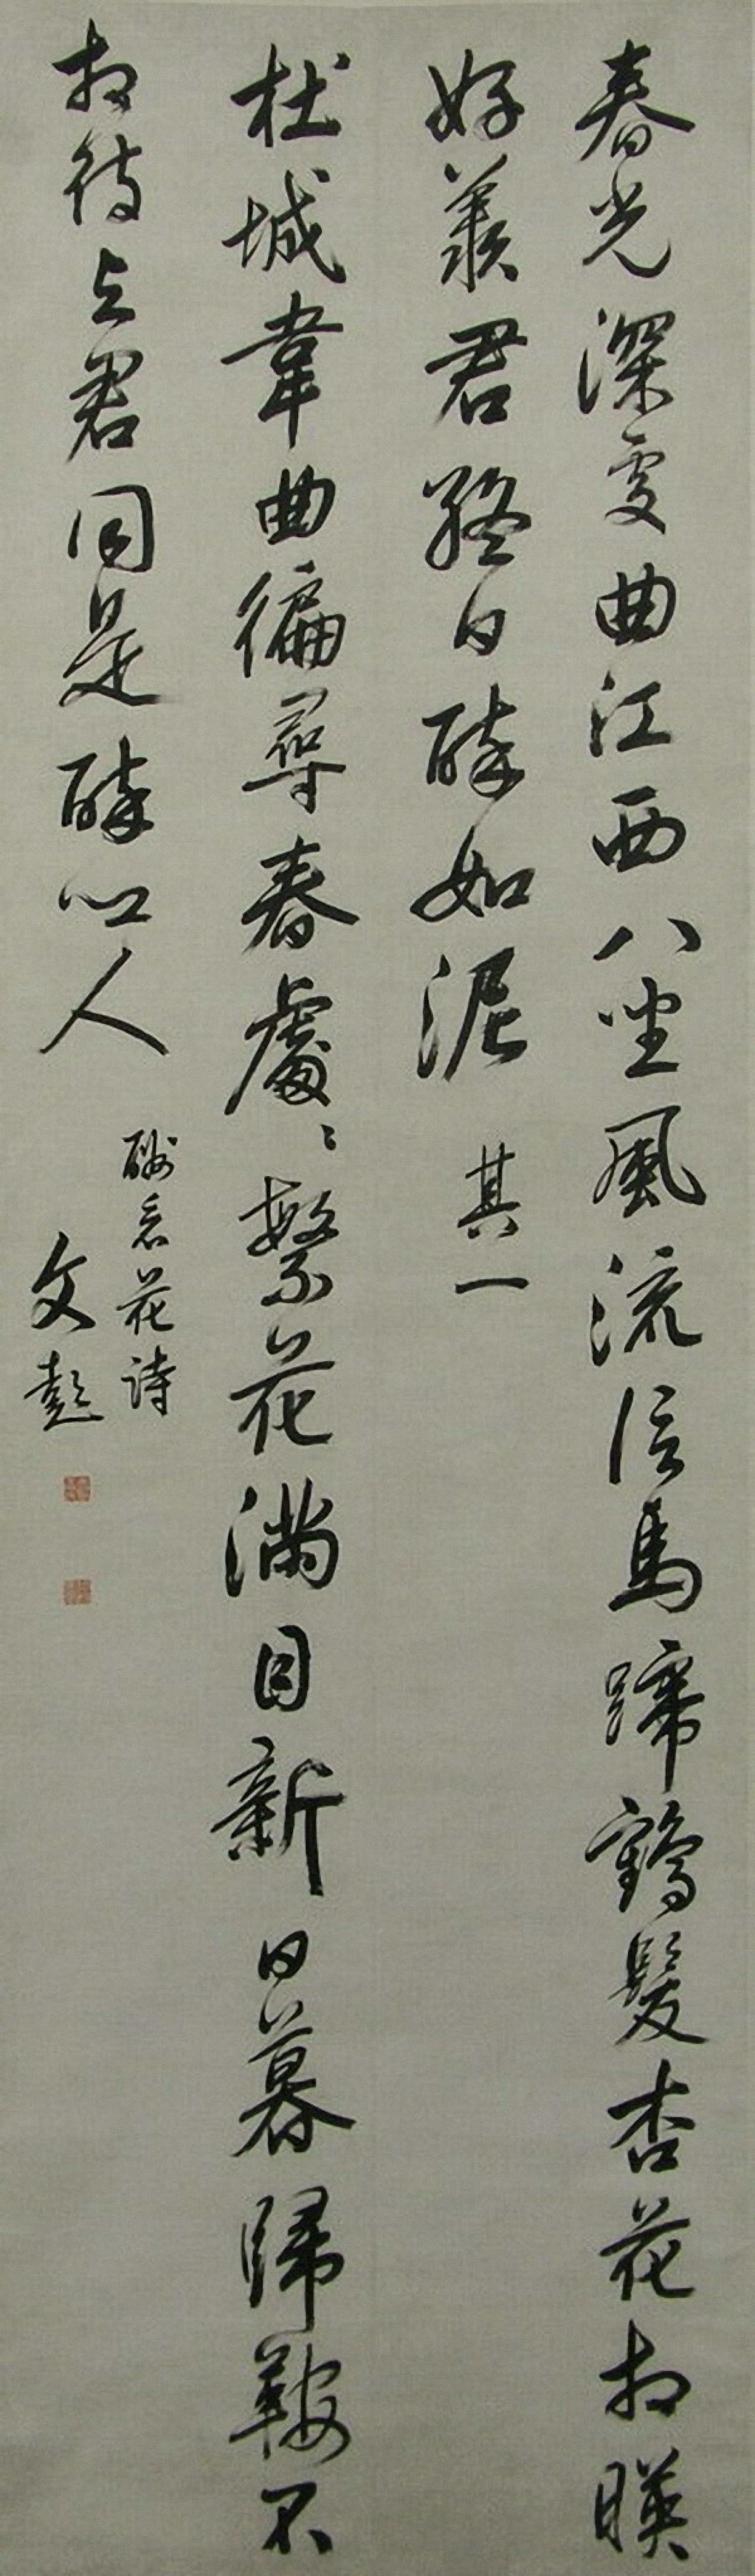 春光深處曲江西八坐風流信馬蹄鶴髮杏花相暎
好羨君終日醉如泥
其一
杜城韋曲徧尋春處〻繁花滿目新日暮歸鞍不
相待与君同是醉鄉人
酬看花詩
文彭